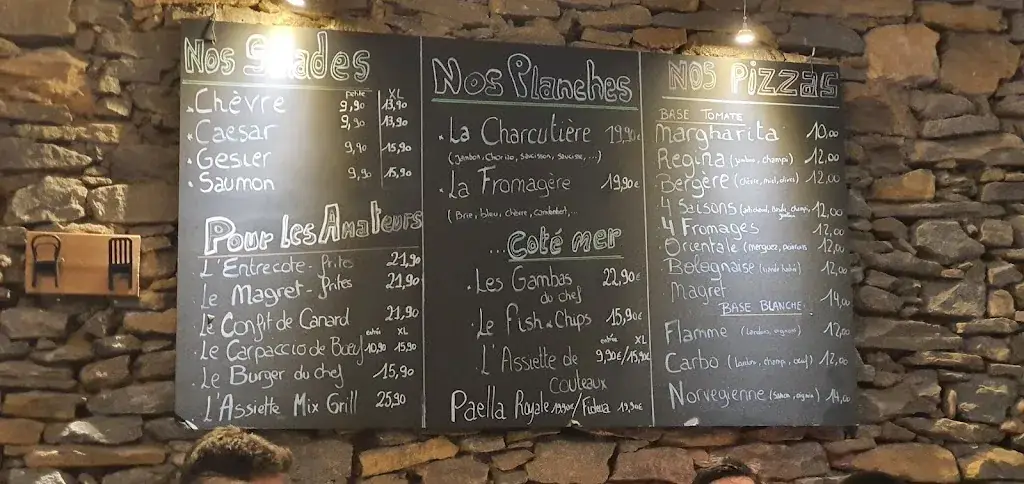 Nos Salades
petite XL
Chèvre 9,90 13,90
Caesar 9,90 13,90
Gesier 9,90 15,90
Saumon 9,90 15,90
Pour Les Amateurs
L'Entrecote - frites 21,90
Le Magret - frites 21,90
Le Confit de Canard 21,90
entrée XL
Le Carpaccio de Boeuf 10,90 15,90
Le Burger du chef 15,90
L'Assiette Mix Grill 25,90
Nos Planches
La Charcutière 19,90€
(Jambon, chorizo, saucisson, saucisse, ...)
La Fromagère 19,90€
(Brie, bleu, chèvre, camembert, ...
... Coté mer
Les Gambas 22,90€
du chef
Le Fish & Chips 15,90€
entrée XL
L'Assiette de 9,90€/15,90€
Couteaux
Paella Royale 19,90€/Fideua 19,90€
Nos Pizzas
BASE TOMATE
Margharita 10,00
Regina (jambon, champi) 12,00
Bergère (chèvre, miel, olives) 12,00
4 Saisons (artichaut, champi, 12,00
4 Fromages 12,00
Orientale (merguez, poivrons 12,00
Bolognaise (viande hachée) 12,00
Magret 14,00
BASE BLANCHE
Flamme (Lardons, oignons) 12,00
Carbo (lardon, champ, oeuf) 12,00
Norvegienne (saumon, oignon) 14,00